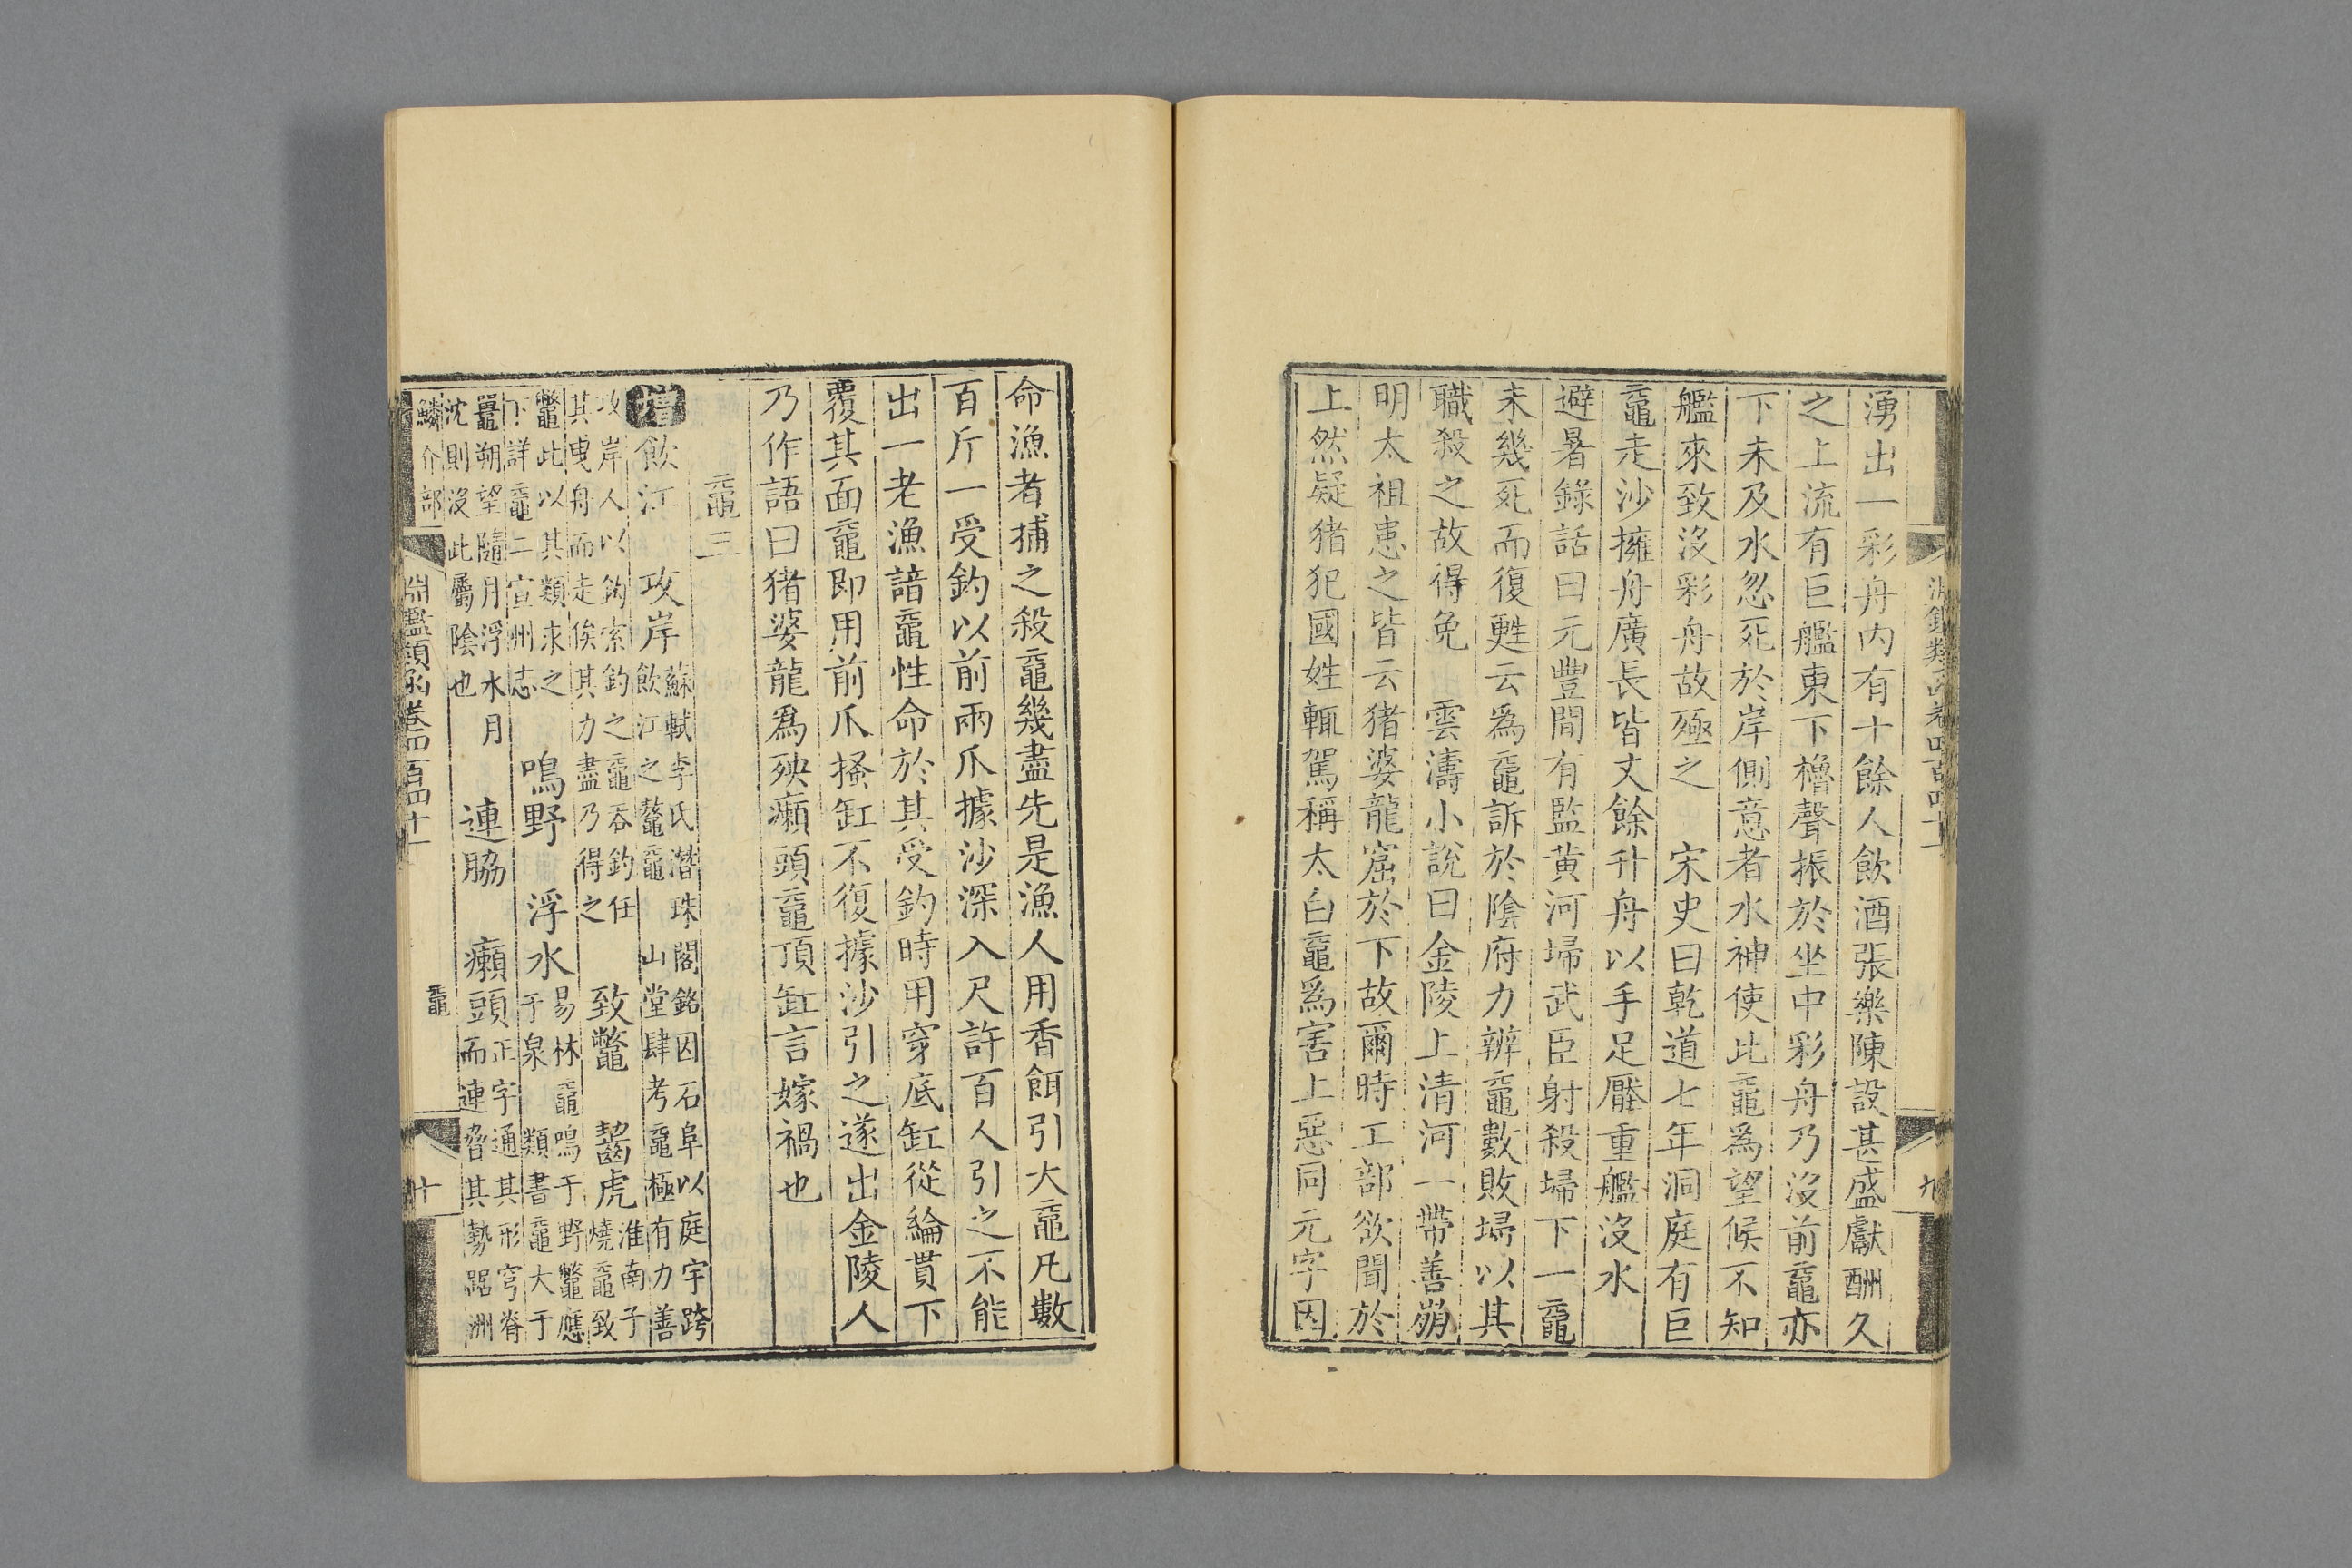 湧出一彩舟内有十餘人飲酒張樂陳設甚盛獻酬久
之上流有巨艦東下櫓聲振於坐中彩舟乃沒前黿亦
下未及水忽死於岸側意者水神使此黿爲望候不知
艦來致沒彩舟故殛之　宋史曰乾道七年洞庭有巨
黿走沙擁舟廣長皆丈餘升舟以手足壓重艦沒水
避暑錄話曰元豐間有監黃河埽武臣射殺埽下一黿
未幾死而復甦云爲黿訴於陰府力辨黿數敗埽以其
職殺之故得免　雲濤小說曰金陵上清河一帶善崩
明太祖患之皆云猪婆龍窟於下故爾時工部欲聞於
上然疑猪犯國姓輒駕稱太白黿爲害上惡同元字因
命漁者捕之殺黿幾盡先是漁人用香餌引大黿凡數
百斤一受釣以前兩爪據沙深入尺許百人引之不能
出一老漁諳黿性命於其受釣時用穿底缸從綸貫下
覆其面黿即用前爪搔缸不復據沙引之遂出金陵人
乃作語曰猪婆龍爲殃癩頭黿頂缸言嫁禍也
黿三
增飲江　攻岸蘇軾李氏潛珠閣銘因石阜以庭宇跨飲江之鼇黿　山堂肆考黿極有力善
攻岸人以鈎索釣之黿吞釣任其曳舟而走俟其力盡乃得之　致鼈　齧虎淮南子燒黿致
鼈此以其類求之下詳黿二宣州志　鳴野　浮水易林黿鳴于野鼈應于泉　類書黿大于
鼉朔望隨月浮水月沈則沒此屬陰也　連脇　癩頭正字通其形穹脊而連脅其勢踞洲
鱗介部
淵鑑類函卷四百四十一
黿
十